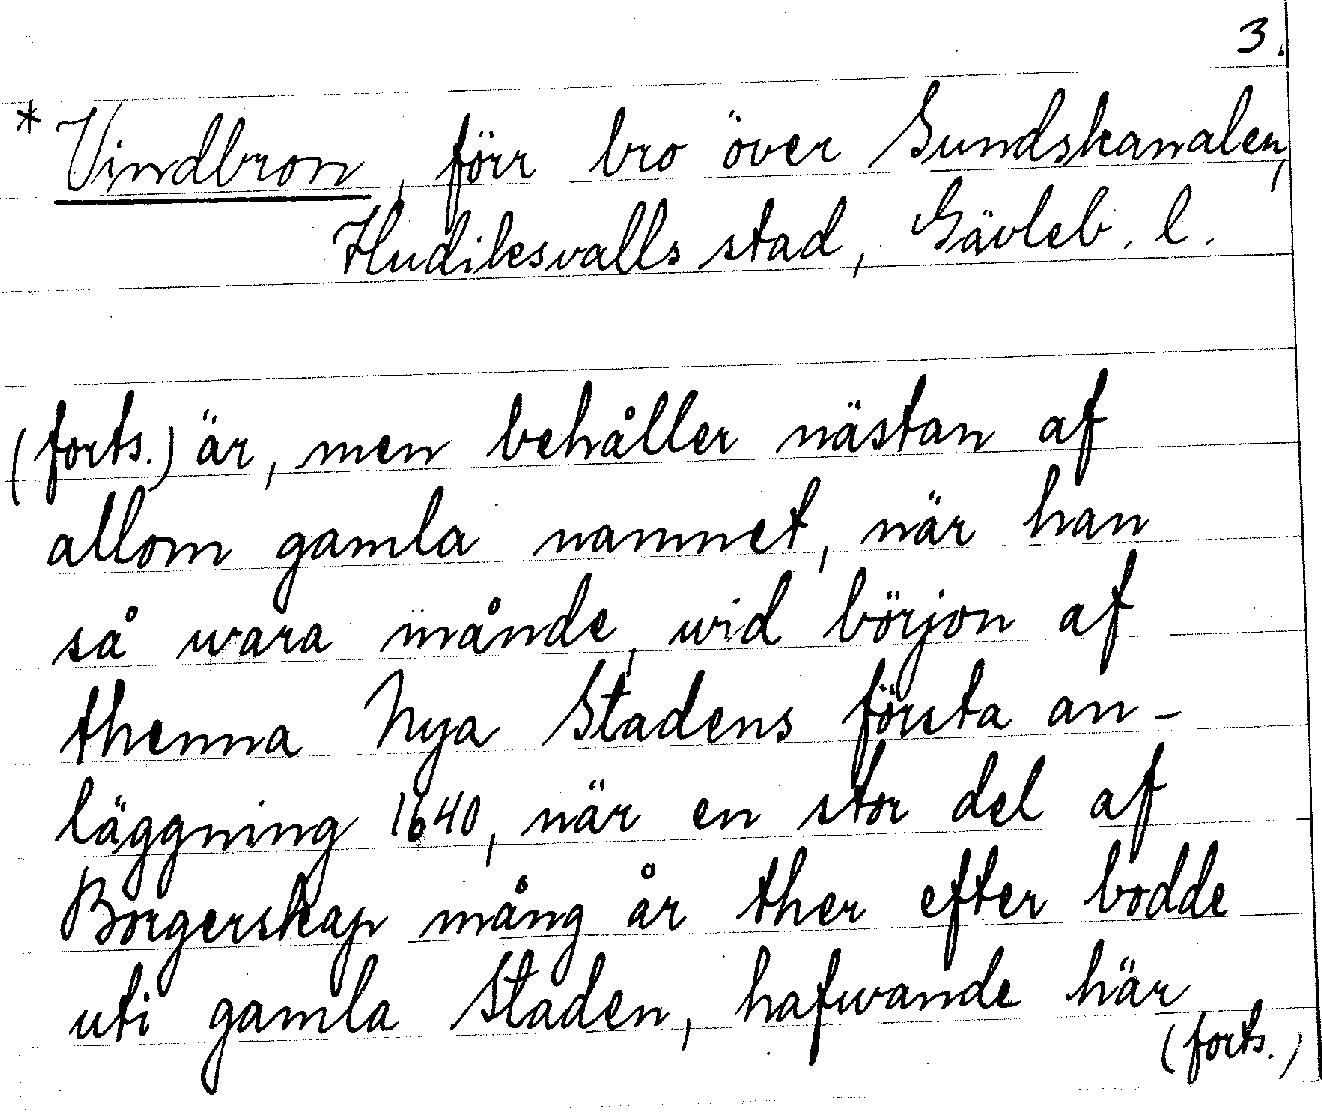 3.
* Vindbron, förr bro över Sundskanalen,
Hudiksvalls stad, Gävleb. l.
(forts.) är, men behåller nästan af
allom gamla namnet, när han
så wara månde, wid börjon af
thenna Nya Stadens första an-
läggning 1640, när en stor del af
Borgerskap mång år ther efter bodde
uti gamla Staden, hafwande här
(forts.)